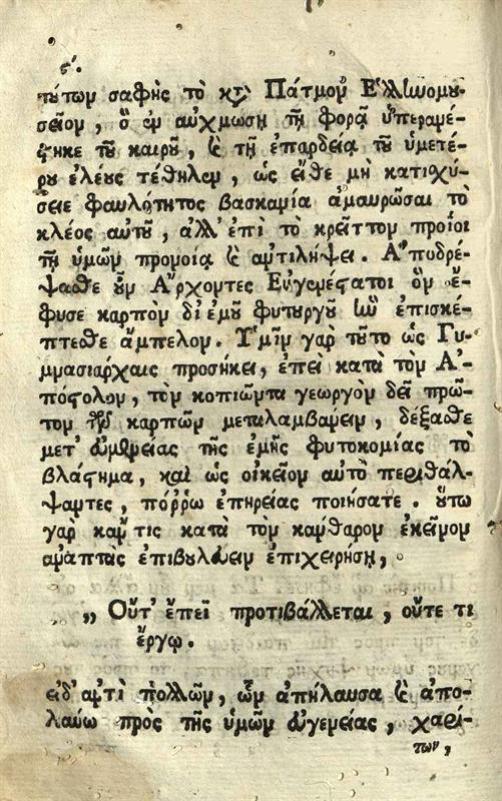 ϛʹ.
τούτων σαφὴς τὸ κτ̀ Πάτμον Ἑλλωομου-
σεῖον, ὃ ἐν αὐχμώσῃ τῇ φορᾷ ὑπεραμέ-
ϛηκε τοῦ καιροῦ, ϗ τῇ ἐπαρδείᾳ τοῦ ὑμετέ-
ρου ἐλέους τέθηλεν, ὡς εἴθε μὴ κατιοχύ-
σειε φαυλότητος βασκανία ἀμαυρῶσαι τὸ
κλέος αὐτοῦ, ἀλλ' ἐπὶ τὸ κρεῖττον προΐοι
τῇ ὑμῶν προνοίᾳ ϗ ἀντιλήψει. Ἀποδρέ-
ψασθε οὖν Ἄρχοντες Εὐγενέϛατοι ὃν ἔ-
φυσε καρπὸν δι' ἐμοῦ φυτουργοῦ ἣν ἐπισκέ-
πτεσθε ἄμπελον. Ὑμῖν γὰρ τοῦτο ὡς Γυ-
μνασιάρχαις προσήκει, ἐπεὶ κατὰ τὸν Ἀ-
πόϛολον, τὸν κοπιῶντα γεωργὸν δεῖ πρῶ-
τον τῶν καρπῶν μεταλαμβάνειν, δέξασθε
μετ' εὐμενείας τῆς ἐμῆς φυτοκομίας τὸ
βλάϛημα, καὶ ὡς οἰκεῖον αὐτὸ περιθάλ-
ψαντες, πόῤῥω ἐπηρείας ποιήσατε. οὕτω
γὰρ κἄν τις κατὰ τὸν κάνθαρον ἐκεῖνον
ἀναπτὰς ἐπιβουλεύειν ἐπιχειρήσῃ,
„ Οὔτ' ἔπει προτιβάλλεται, οὔτε τι
ἔργῳ.
εἰδ' ἀντὶ πολλῶν, ὧν ἀπήλαυσα ϗ ἀπο-
λαύω πρὸς τῆς ὑμῶν εὐγενείας, χαρί-
των,